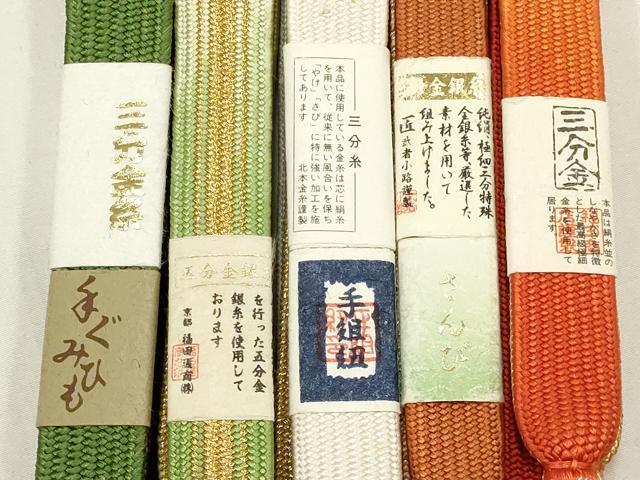 手ぐひ
みも
五分金銀
を行った五分金
銀糸を使用して
おります
京都
三分糸
本品に使用している金糸は芯に絹糸
を用いて、従来に無い風合いを保ち
「やけ」「さび」に特に強い加工を施
してあります
北本金糸謹製
手組紐
金銀糸
純絹、極細三分特殊
金銀糸等、厳選した
素材を用いて
組み上げました。
匠 武者小路謹製
三分金
本品は絹糸並の
しなやかさを特徴
とした最高級極細
金糸を使用して
居ります